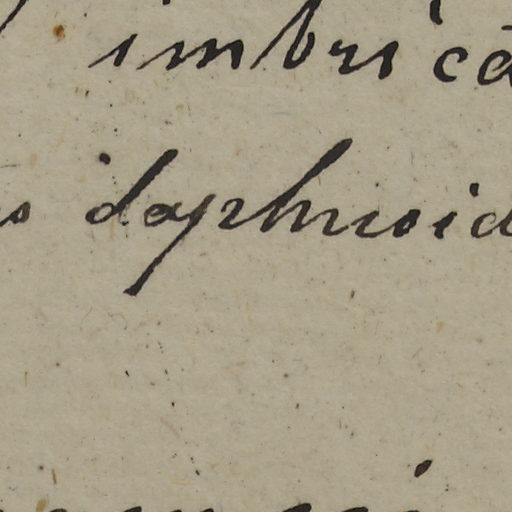 imbrica
s daphnoid